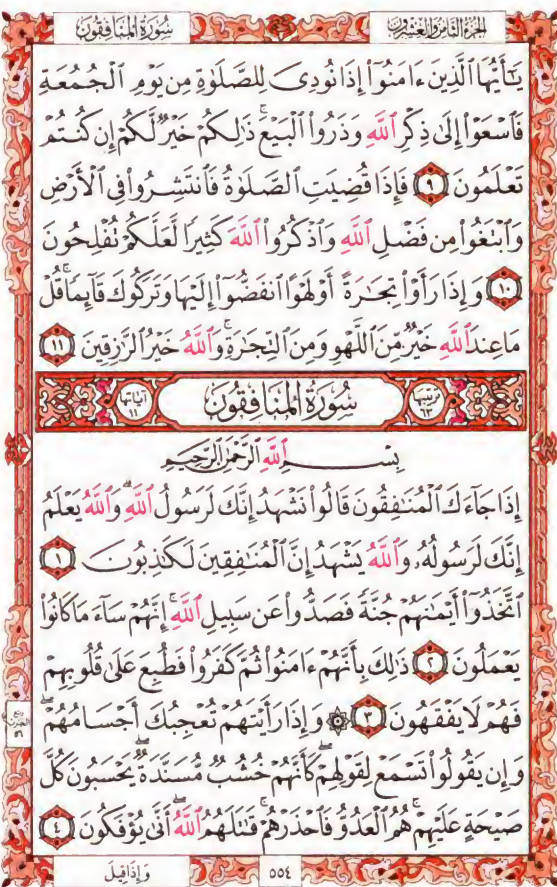 الجزء الثامن والعشرون
سُورَةُ المُنَافِقُون
يَٰٓأَيُّهَا ٱلَّذِينَ ءَامَنُوٓاْ إِذَا نُودِيَ لِلصَّلَوٰةِ مِن يَوۡمِ ٱلۡجُمُعَةِ
فَٱسۡعَوۡاْ إِلَىٰ ذِكۡرِ ٱللَّهِ وَذَرُواْ ٱلۡبَيۡعَۚ ذَٰلِكُمۡ خَيۡرٞ لَّكُمۡ إِن كُنتُمۡ
تَعۡلَمُونَ ٩ فَإِذَا قُضِيَتِ ٱلصَّلَوٰةُ فَٱنتَشِرُواْ فِي ٱلۡأَرۡضِ
وَٱبۡتَغُواْ مِن فَضۡلِ ٱللَّهِ وَٱذۡكُرُواْ ٱللَّهَ كَثِيرٗا لَّعَلَّكُمۡ تُفۡلِحُونَ
١٠ وَإِذَا رَأَوۡاْ تِجَٰرَةً أَوۡ لَهۡوًا ٱنفَضُّوٓاْ إِلَيۡهَا وَتَرَكُوكَ قَآئِمٗاۚ قُلۡ
مَا عِندَ ٱللَّهِ خَيۡرٞ مِّنَ ٱللَّهۡوِ وَمِنَ ٱلتِّجَٰرَةِۚ وَٱللَّهُ خَيۡرُ ٱلرَّٰزِقِينَ ١١
ترتيبها ٦٣ سُورَةُ المُنَافِقُونَ آياتها ١١
بِسۡمِ ٱللَّهِ ٱلرَّحۡمَٰنِ ٱلرَّحِيمِ
إِذَا جَآءَكَ ٱلۡمُنَٰفِقُونَ قَالُواْ نَشۡهَدُ إِنَّكَ لَرَسُولُ ٱللَّهِۗ وَٱللَّهُ يَعۡلَمُ
إِنَّكَ لَرَسُولُهُۥ وَٱللَّهُ يَشۡهَدُ إِنَّ ٱلۡمُنَٰفِقِينَ لَكَٰذِبُونَ ١
ٱتَّخَذُوٓاْ أَيۡمَٰنَهُمۡ جُنَّةٗ فَصَدُّواْ عَن سَبِيلِ ٱللَّهِۚ إِنَّهُمۡ سَآءَ مَا كَانُواْ
يَعۡمَلُونَ ٢ ذَٰلِكَ بِأَنَّهُمۡ ءَامَنُواْ ثُمَّ كَفَرُواْ فَطُبِعَ عَلَىٰ قُلُوبِهِمۡ
فَهُمۡ لَا يَفۡقَهُونَ ٣ ۞ وَإِذَا رَأَيۡتَهُمۡ تُعۡجِبُكَ أَجۡسَامُهُمۡۖ
وَإِن يَقُولُواْ تَسۡمَعۡ لِقَوۡلِهِمۡۖ كَأَنَّهُمۡ خُشُبٞ مُّسَنَّدَةٞۖ يَحۡسَبُونَ كُلَّ
صَيۡحَةٍ عَلَيۡهِمۡۚ هُمُ ٱلۡعَدُوُّ فَٱحۡذَرۡهُمۡۚ قَٰتَلَهُمُ ٱللَّهُۖ أَنَّىٰ يُؤۡفَكُونَ ٤
٥٥٤
وَإِذَا قِيلَ